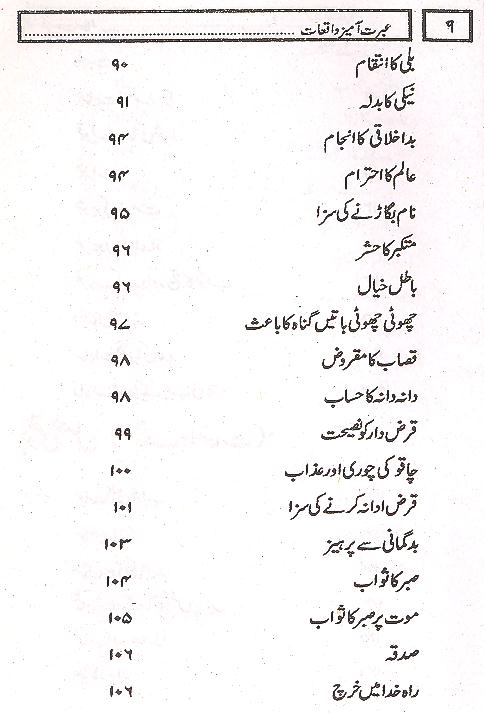 ۹ عبرت آمیز واقعات ........................................
بلی کا انتقام ۹۰
نیکی کا بدلہ ۹۱
بداخلاقی کا انجام ۹۴
عالم کا احترام ۹۴
نام بگاڑنے کی سزا ۹۵
متکبر کا حشر ۹۶
باطل خیال ۹۶
چھوٹی چھوٹی باتیں گناہ کا باعث ۹۷
قصاب کا مقروض ۹۸
دانہ دانہ کا حساب ۹۸
قرض دار کو نصیحت ۹۹
چاقو کی چوری اور عذاب ۱۰۰
قرض ادا نہ کرنے کی سزا ۱۰۱
بدگمانی سے پرہیز ۱۰۳
صبر کا ثواب ۱۰۴
موت پر صبر کا ثواب ۱۰۵
صدقہ ۱۰۶
راہ خدا میں خرچ ۱۰۶